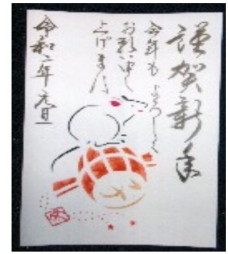 謹賀新年
今年もよろしく
お願い申し
上げます
令和二年 元旦